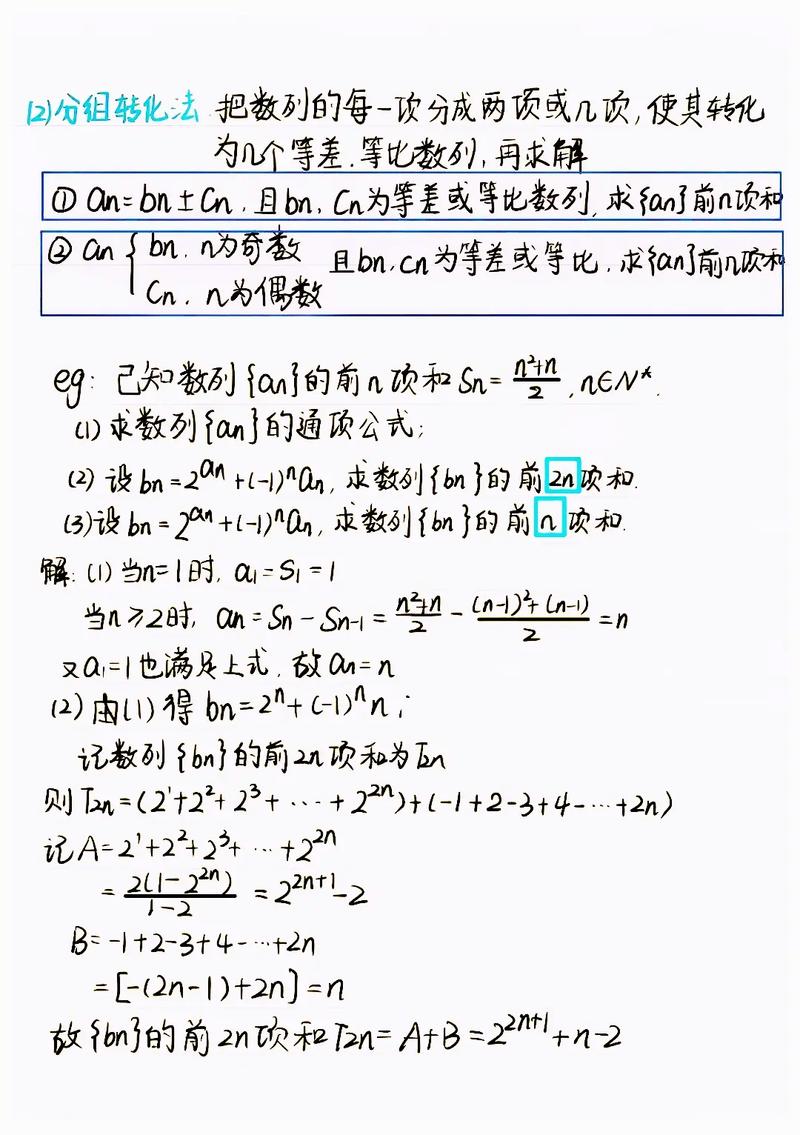 (2)分组转化法 把数列的每一项分成两项或几项,使其转化
为几个等差.等比数列,再求解
① an=bn±Cn,且bn,Cn为等差或等比数列,求{an}前n项和
② an { bn,n为奇数 且bn,cn为等差或等比,求{an}前n项和
Cn,n为偶数
eg: 已知数列{an}的前n项和Sn=\frac{n²+n}{2},n∈N*.
(1)求数列{an}的通项公式;
(2)设bn=2^{an}+(-1)^n an,求数列{bn}的前2n项和.
(3)设bn=2^{an}+(-1)^n an,求数列{bn}的前n项和.
解:(1)当n=1时,a₁=S₁=1
当n≥2时,an=Sn-Sn-1=\frac{n²+n}{2}-\frac{(n-1)²+(n-1)}{2}=n
又a₁=1也满足上式.故an=n
(2)由(1)得bn=2^n+(-1)^n n;
记数列{bn}的前2n项和为T2n
则T2n=(2^1+2^2+2^3+…+2^{2n})+(-1+2-3+4-…+2n)
记A=2^1+2^2+2^3+…+2^{2n}
=\frac{2(1-2^{2n})}{1-2}=2^{2n+1}-2
B=-1+2-3+4-…+2n
=[-(2n-1)+2n]=n
故{bn}的前2n项和T2n=A+B=2^{2n+1}+n-2